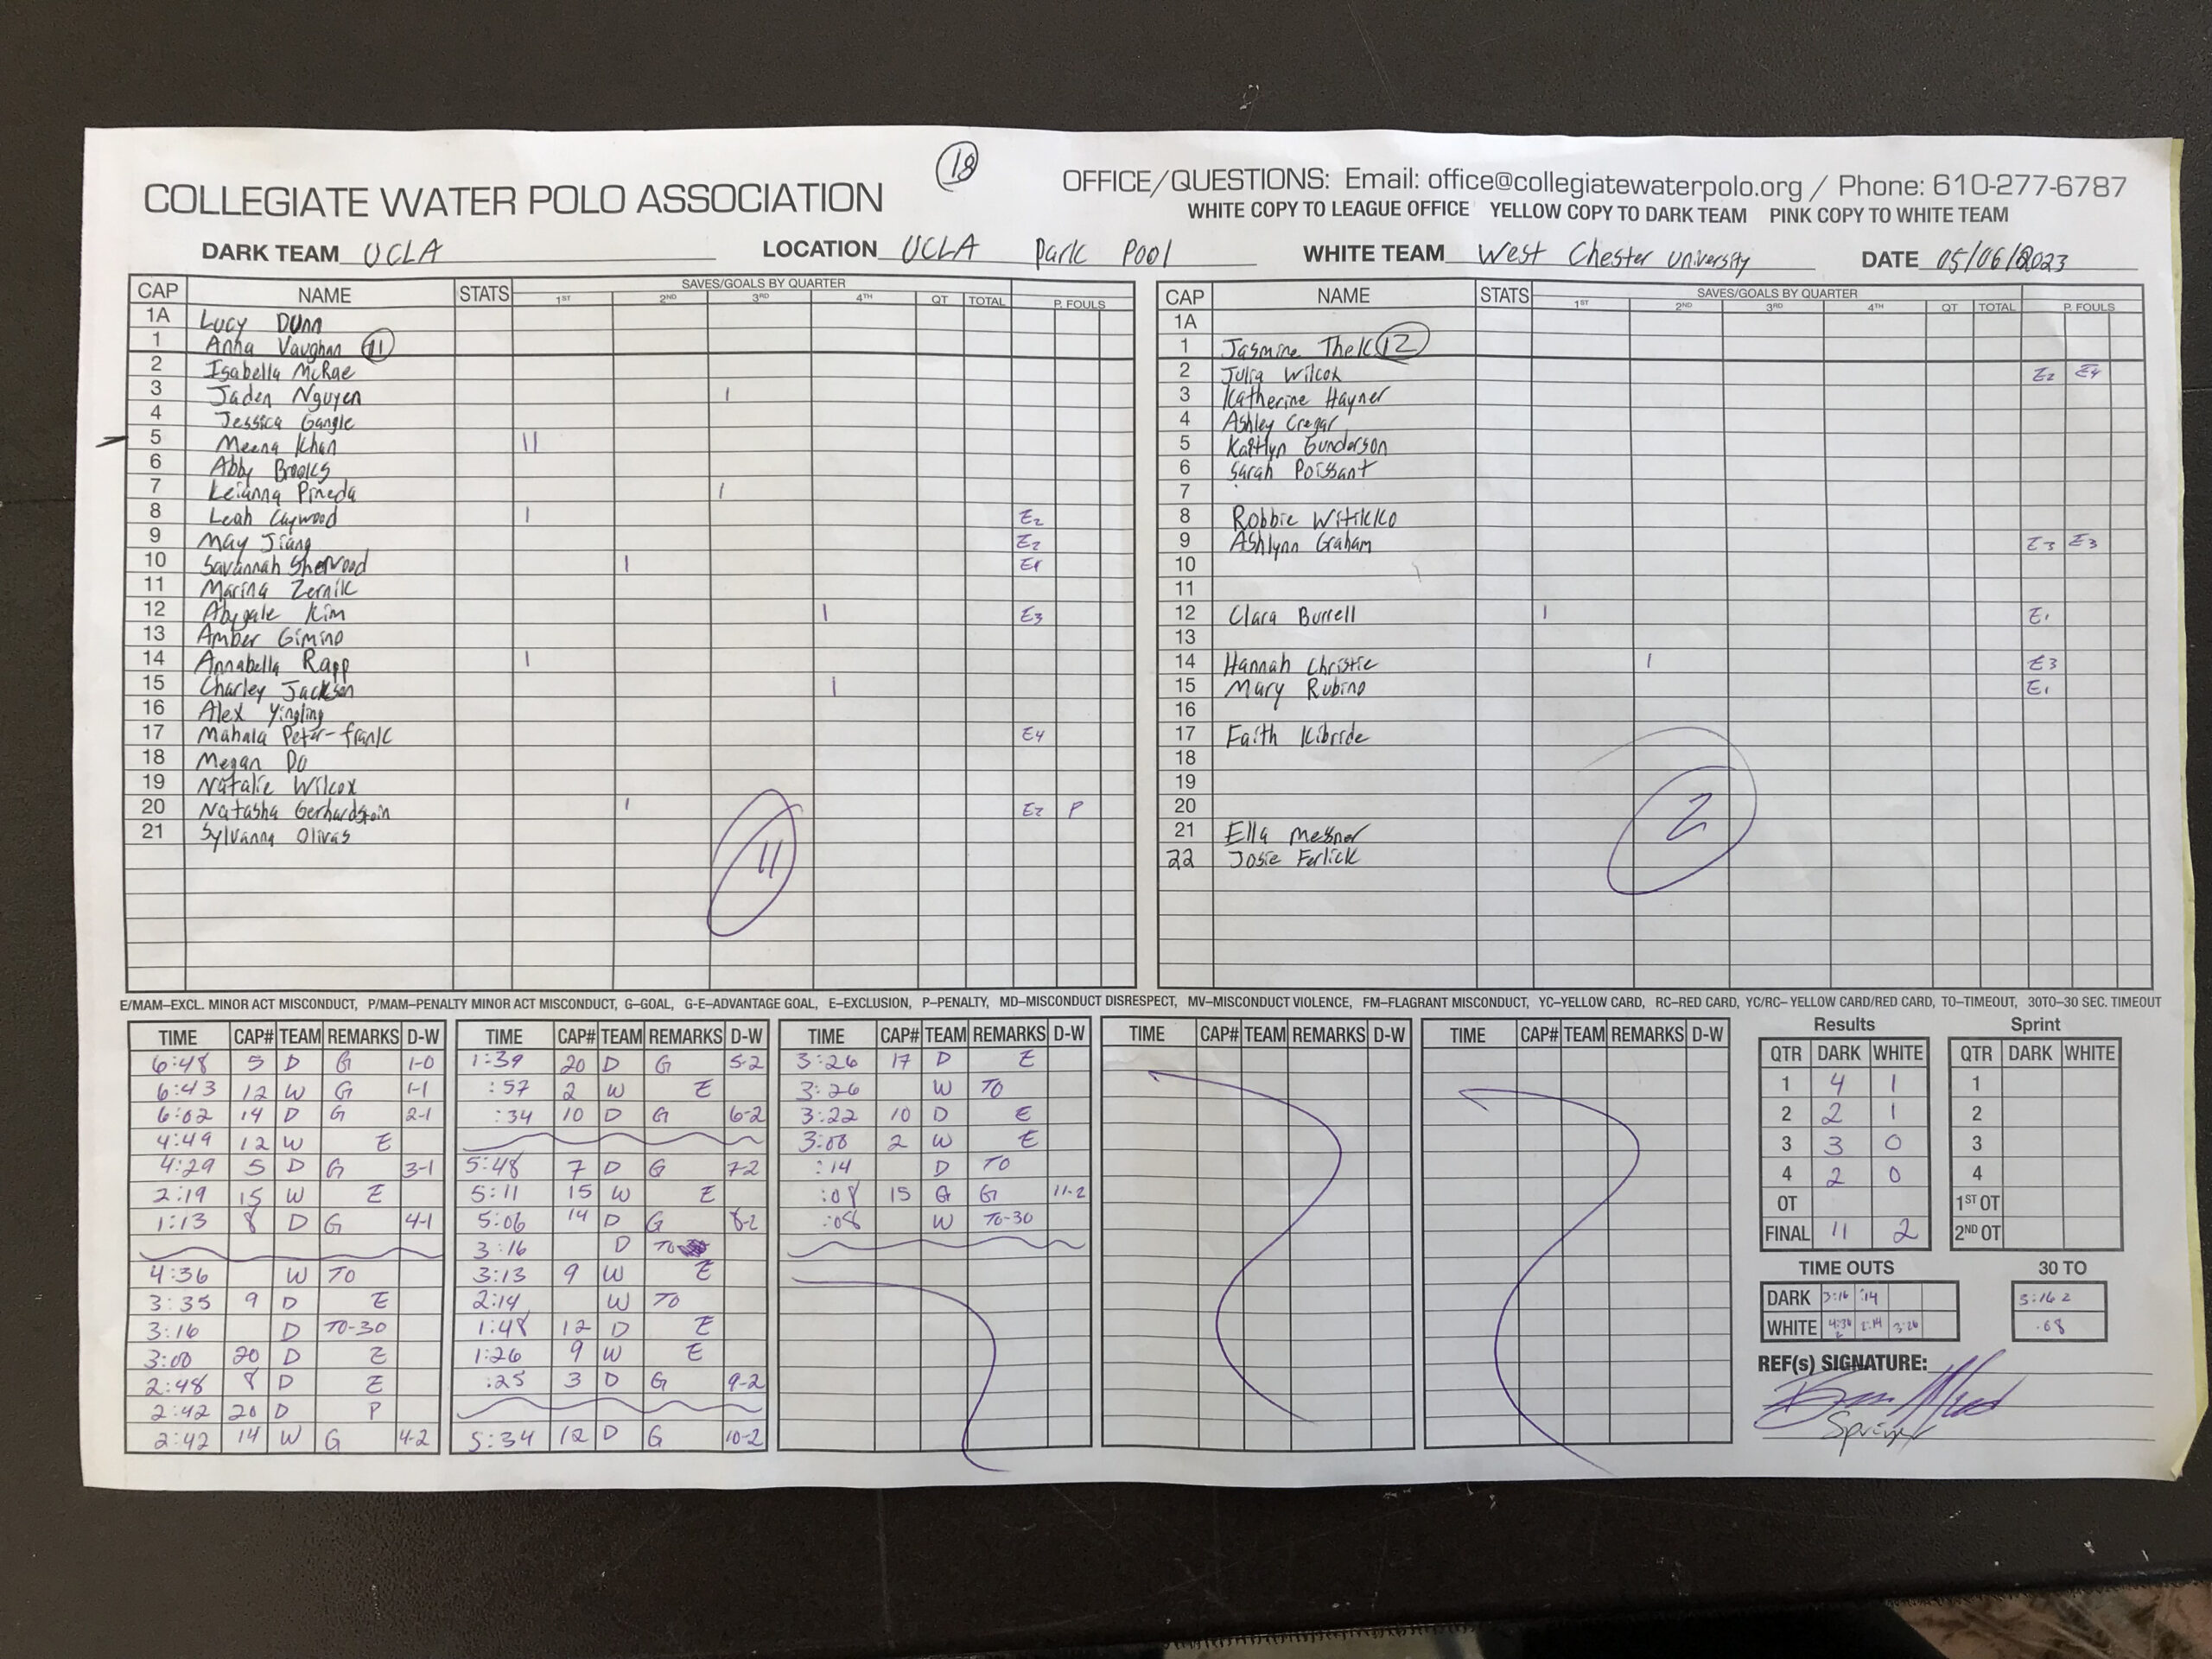 18
COLLEGIATE WATER POLO ASSOCIATION
OFFICE/QUESTIONS: Email: office@collegiatewaterpolo.org / Phone: 610-277-6787
WHITE COPY TO LEAGUE OFFICE YELLOW COPY TO DARK TEAM PINK COPY TO WHITE TEAM
DARK TEAM UCLA LOCATION UCLA Park Pool WHITE TEAM West Chester University DATE 05/06/2023
CAP NAME STATS SAVES/GOALS BY QUARTER
1ST 2ND 3RD 4TH QT TOTAL P. FOULS
1A Lucy Dunn
1 Anna Vaughan 11
2 Isabella McRae
3 Jaden Nguyen |
4 Jessica Gangle
5 Meena Khan ||
6 Abby Brooks
7 Keianna Pineda |
8 Leah Caywood | E2
9 May Jiang E2
10 Savannah Sherwood | E1
11 Marina Zernik
12 Abygale Kim | E3
13 Amber Gimino
14 Annabella Rapp |
15 Charley Jackson |
16 Alex Yingling
17 Mahala Peter-frank E4
18 Megan Do
19 Natalie Wilcox
20 Natasha Gerhardstein | E2 P
21 Sylvanna Olivas
11
CAP NAME STATS SAVES/GOALS BY QUARTER
1ST 2ND 3RD 4TH QT TOTAL P. FOULS
1A
1 Jasmine Thelk 12
2 Julia Wilcox E2 E4
3 Katherine Hayner
4 Ashley Cregar
5 Kaitlyn Gunderson
6 Sarah Poissant
7
8 Robbie Witikko
9 Ashlynn Graham E3 E3
10
11
12 Clara Burrell | E1
13
14 Hannah Christie | E3
15 Mary Rubino E1
16
17 Faith Kibride
18
19
20
21 Ella Messner
22 Josie Ferlick
2
E/MAM–EXCL. MINOR ACT MISCONDUCT, P/MAM–PENALTY MINOR ACT MISCONDUCT, G–GOAL, G-E–ADVANTAGE GOAL, E–EXCLUSION, P–PENALTY, MD–MISCONDUCT DISRESPECT, MV–MISCONDUCT VIOLENCE, FM–FLAGRANT MISCONDUCT, YC–YELLOW CARD, RC–RED CARD, YC/RC–YELLOW CARD/RED CARD, TO–TIMEOUT, 30TO–30 SEC. TIMEOUT
TIME CAP# TEAM REMARKS D-W
6:48 5 D G 1-0
6:43 12 W G 1-1
6:02 14 D G 2-1
4:49 12 W E
4:29 5 D G 3-1
2:19 15 W E
1:13 8 D G 4-1
4:36 W TO
3:35 9 D E
3:16 D TO-30
3:00 20 D E
2:48 8 D E
2:42 20 D P
2:42 14 W G 4-2
TIME CAP# TEAM REMARKS D-W
1:39 20 D G 5-2
:57 2 W E
:34 10 D G 6-2
5:48 7 D G 7-2
5:11 15 W E
5:06 14 D G 8-2
3:16 D TO
3:13 9 W E
2:14 W TO
1:48 12 D E
1:26 9 W E
:25 3 D G 9-2
5:34 12 D G 10-2
TIME CAP# TEAM REMARKS D-W
3:26 17 D E
3:26 W TO
3:22 10 D E
3:00 2 W E
:14 D TO
:08 15 G G 11-2
:08 W TO-30
TIME CAP# TEAM REMARKS D-W
TIME CAP# TEAM REMARKS D-W
Results
QTR DARK WHITE
1 4 1
2 2 1
3 3 0
4 2 0
OT
FINAL 11 2
Sprint
QTR DARK WHITE
1
2
3
4
1ST OT
2ND OT
TIME OUTS
DARK 3:16 :14
WHITE 4:36 2:14 3:26
30 TO
3:16 2
.08
REF(s) SIGNATURE: